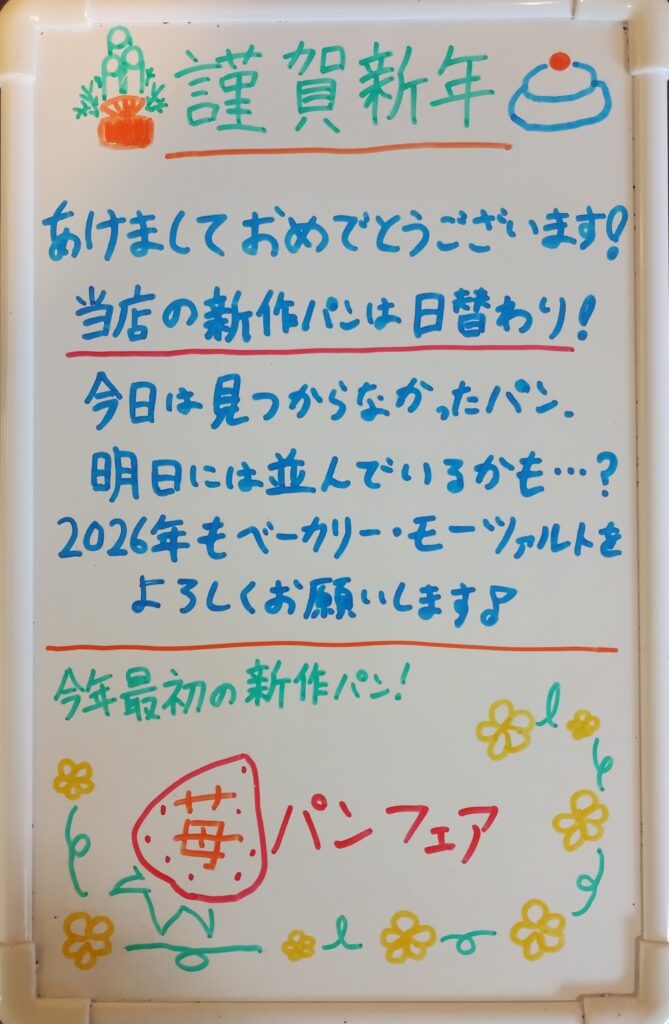 謹賀新年
あけましておめでとうございます!
当店の新作パンは日替わり!
今日は見つからなかったパン.
明日には並んでいるかも…?
2026年もベーカリー・モーツァルトを
よろしくお願いします♪
今年最初の新作パン!
苺パンフェア